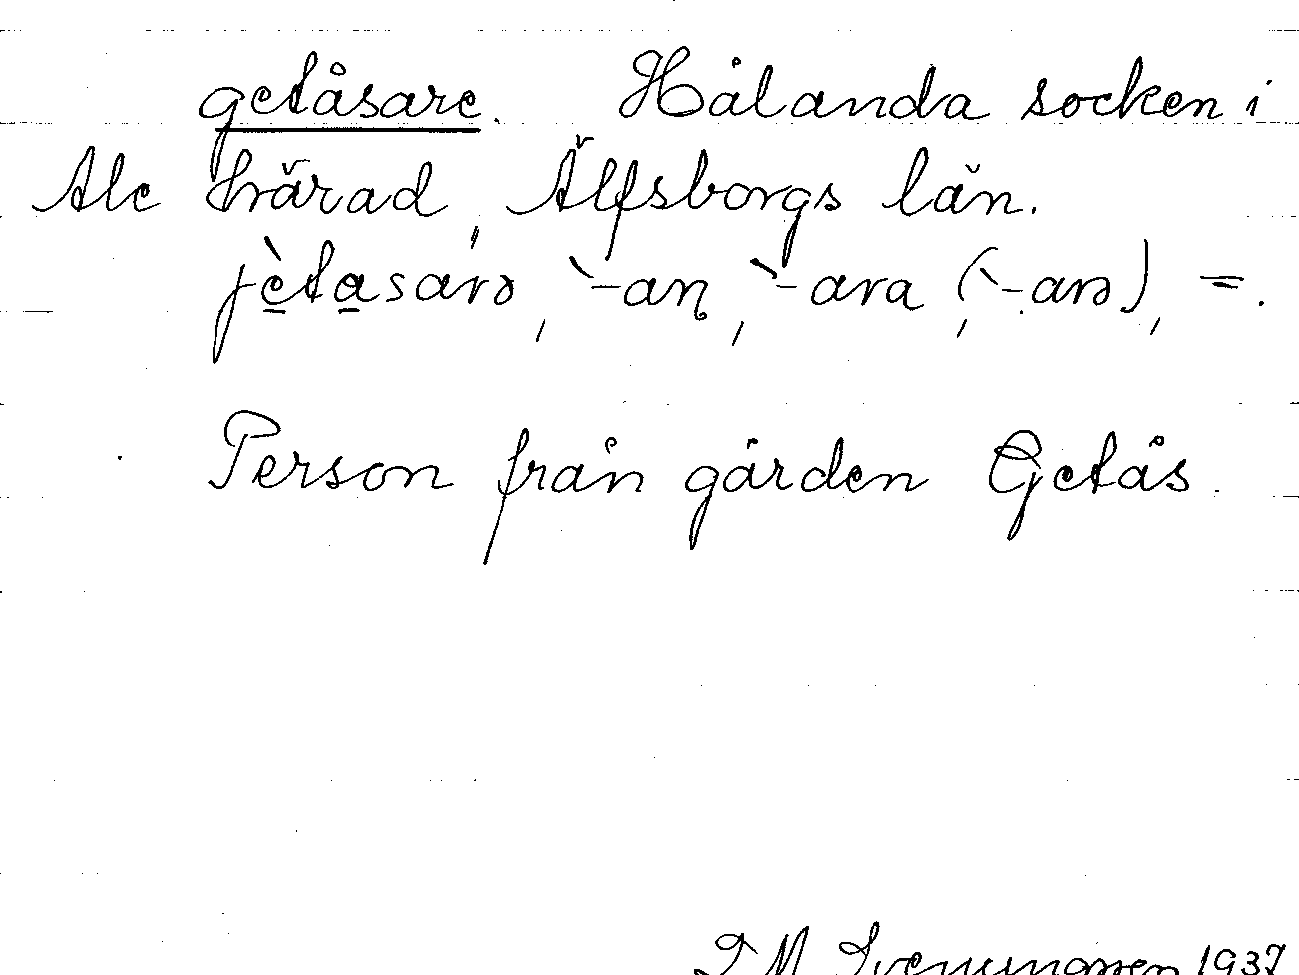 getåsare. Hålanda socken i
Ale härad, Älfsborgs län.
jètasarə, `-an, `-ara (`-arə), =.
Person från gården Getås.
1937